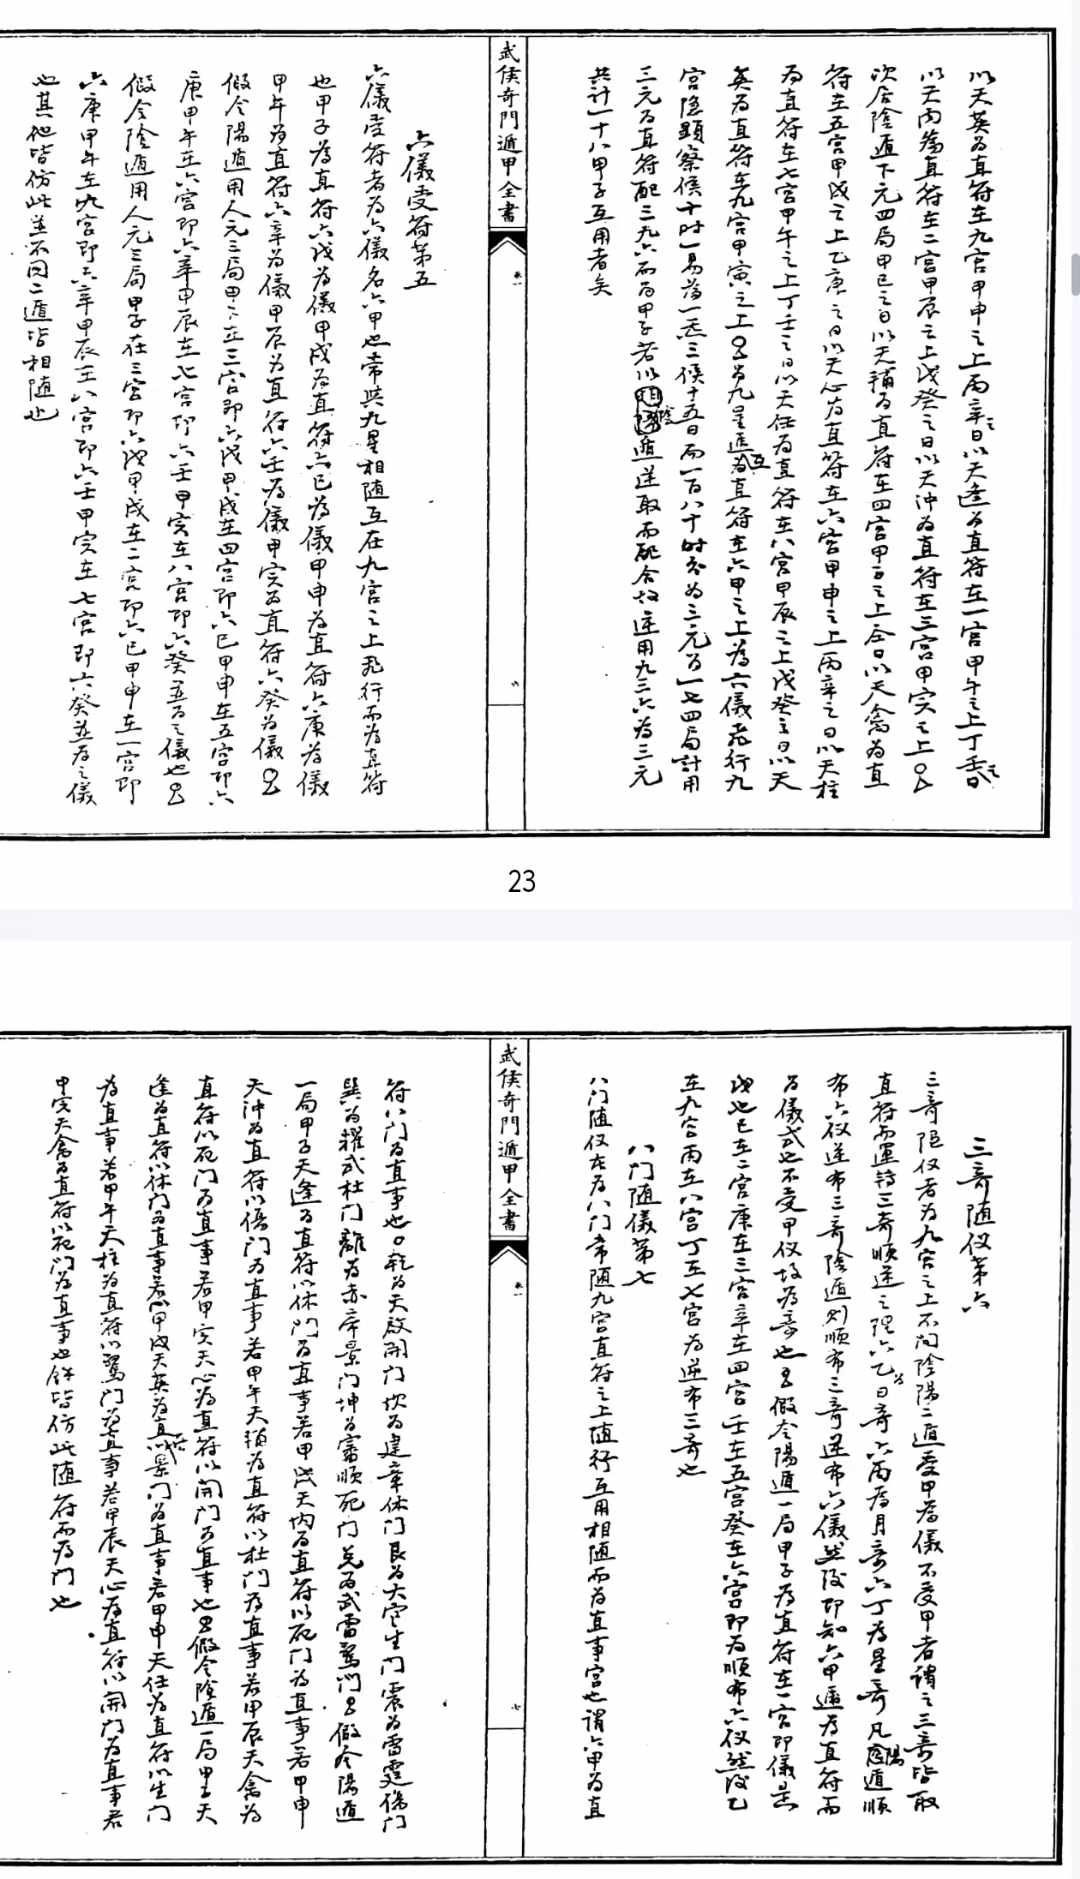 以天英为直符在九宫甲申之上丙辛之日以天逢为直符在一宫甲午之上丁壬之日
以天内为直符在二宫甲辰之上戊癸之日以天冲为直符在三宫甲寅之上
次后陰遁下元四局甲己之日以天辅为直符在四宫甲子之上今日以天禽为直
符在五宫甲戌之上乙庚之日以天心为直符在六宫甲申之上丙辛之日以天柱
为直符在七宫甲午之上丁壬之日以天任为直符在八宫甲辰之上戊癸之日以天
英为直符在九宫甲寅之上 为九星互为直符在六甲之上為六儀飛行九
宫隐顯察侯十时一易為一 三侯十五日而一百八十时 为三元为一七四局計用
三元为直符配三九六 而为甲子若以陰遁逆取而配合故逆用九三六为三元
共计一十八甲子互用者矣
武侯奇門遁甲全書
卷一
六
六儀受符第五
六儀受符者为六儀名六甲也常與九星相随互在九宫之上飛行而为直符
也甲子為直符六戊為儀甲戌為直符六已為儀甲申為直符六庚為儀
甲午为直符六辛为儀甲辰为直符六壬為儀甲寅为直符六癸為儀
假令陽遁用人元三局甲子在三宫即六戊甲戌在四宫即六已甲申在五宫即六
庚甲午在六宫即六辛甲辰在七宫即六壬甲寅在八宫即六癸並为之儀也
假令陰遁用人元三局甲子在三宫即六戊甲戌在二宫即六已甲申在一宫即
六庚甲午在九宫即六辛甲辰在八宫即六壬甲寅在七宫即六癸並为之儀
也其他皆仿此並不同二遁皆相随也
23
三奇随仪第六
三奇随仪者为九宫之上不问陰陽二遁受甲為儀不受甲者谓之三奇皆取
直符而運转三奇順逆之理六乙为日奇六丙為月奇六丁為星奇凡陽遁順
布六仪逆布三奇陰遁则順布三奇逆布六儀然後即知六甲遁為直符而
为儀式也不受甲仪故為奇也 假令陽遁一局甲子為直符在一宫即儀是
戊也已在二宫庚在三宫辛在四宫壬在五宫癸在六宫即为順布六仪然後乙
在九宫丙在八宫丁在七宫为逆布三奇也
八门随儀第七
八门随仪在为八门常随九宫直符之上随行互用相随而為直事宫也谓六甲为直
武侯奇門遁甲全書
卷一
七
符八门為直事也 乾为天啟開门坎为建章休门艮为大 生门震为雷霆傷门
巽为耀武杜门離为赤帝景门坤为審順死门兑为武雷驚门 假令陽遁
一局甲子天逢为直符以休門为直事若甲戌天内为直符以死门為直事若甲申
天冲为直符以傷门为直事若甲午天辅为直符以杜门為直事若甲辰天禽为
直符以死门为直事若甲寅天心為直符以開门为直事也 假令陰遁一局甲子天
逢为直符以休门为直事若甲戌天英为直符以景门为直事若甲申天任为直符以生门
为直事若甲午天柱为直符以驚门為直事若甲辰天心為直符以開门為直事若
甲寅天禽为直符以死门為直事也餘皆仿此随符而為门也